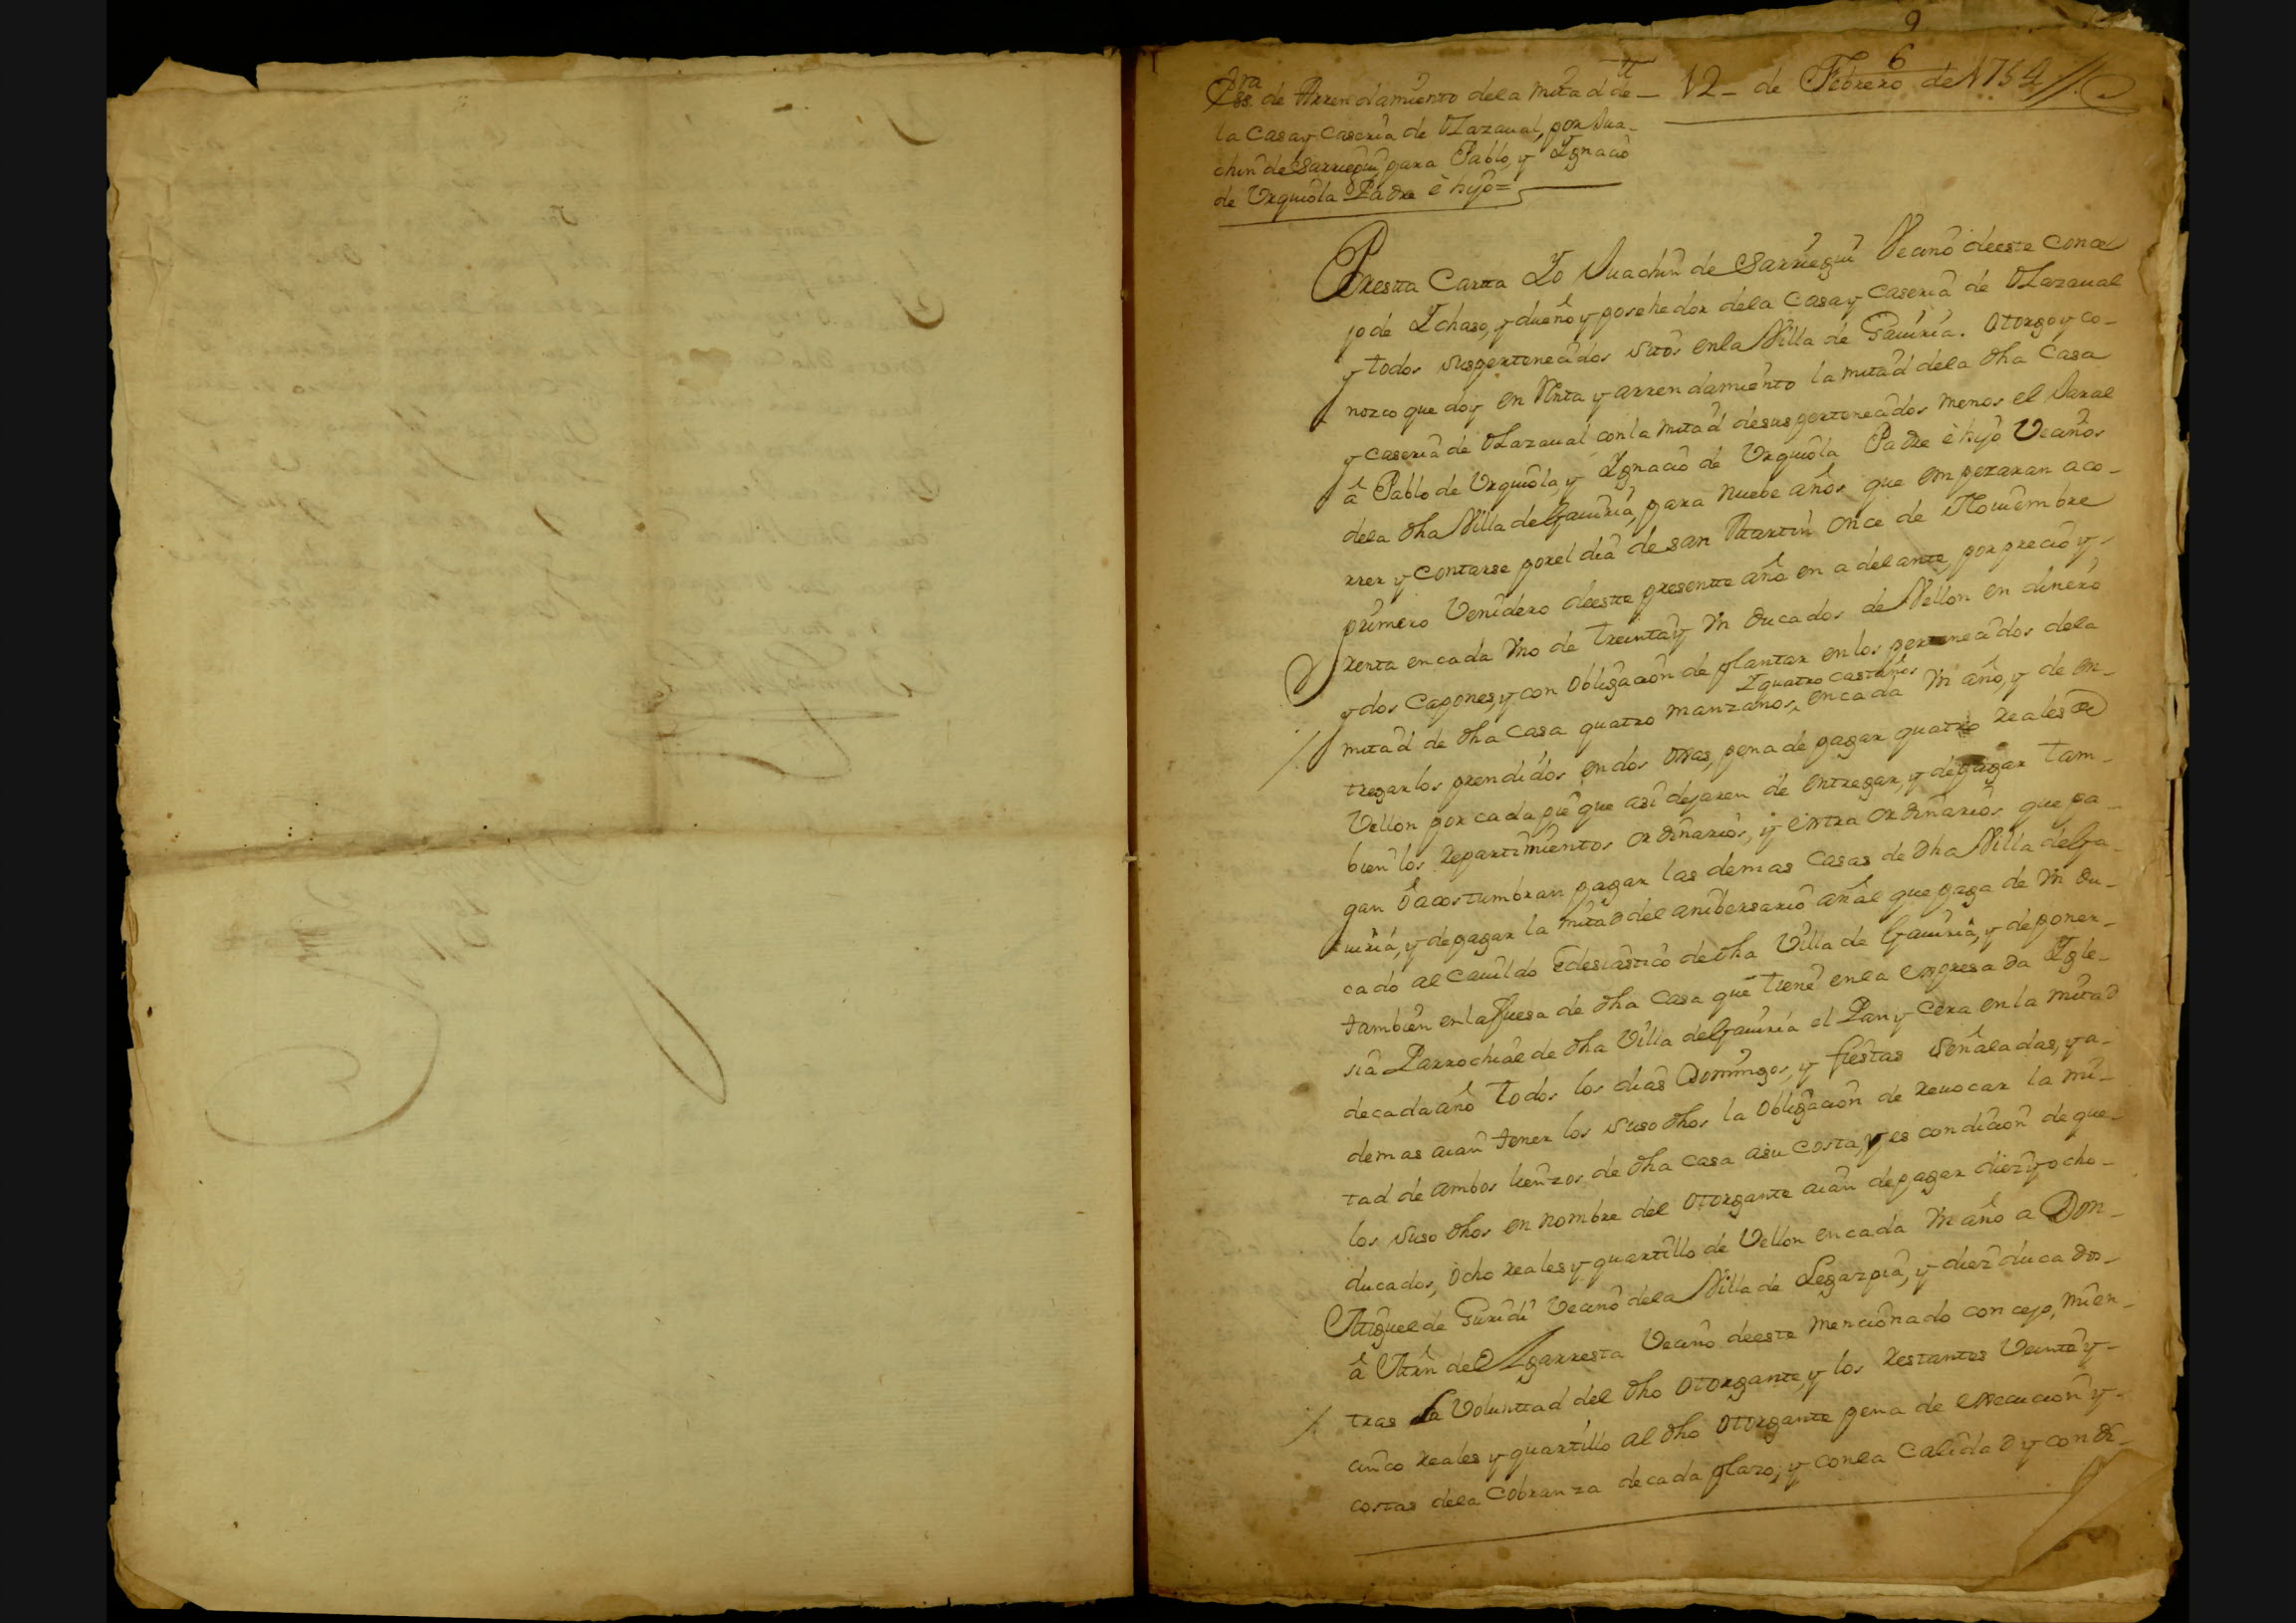 9
6
Essra. de Arrendamiento dela mitad de — 12 - de Febrero de 1754 //
la Casa y Caseria de Olazaval, por Jua-
chin de Sarriegui, para Pablo, y Ignacio
de Urquiola Padre è hijo =
Por esta Carta Yo Juachin de Sarriegui Vecino de este Conce
jo de Ichaso, y dueño y posehedor dela Casa y Caseria de Olazaval
y todos sus pertenecidos sitos en la Villa de Gaviria. Otorgo y co-
nozco que doy en Renta y arrendamiento la mitad dela dha Casa
y Caseria de Olazaval con la mitad de sus pertenecidos menos el Jaral
â Pablo de Urquiola, y Ignacio de Urquiola Padre è hijo Vecinos
dela dha Villa de Gaviria, para nuebe años que empezaran a co-
rrer y Contarse por el dia de san Martin Once de Noviembre
primero Venidero de este presente año en adelante, por precio y-
renta en cada Uno de treinta y Un Ducados de Vellon en dinero
y dos Capones, y con Obligacion de plantar en los pertenecidos dela
Y quatro castaños
mitad de dha Casa quatro manzanos, en cada Un año, y de en-
tregarlos prendidos en dos Ojas, pena de pagar quatro reales de
Vellon por cada pie que asi dejaren de entregar, y de pagar tam-
bien los Repartimientos Ordinarios, y extra Ordinarios que pa-
gan ô acostumbran pagar las demas Casas de dha Villa de Ga-
viria, y de pagar la mitad del anibersario añal que paga de Un Du-
cado al Cavildo Eclesiastico de dha Villa de Gaviria, y de poner-
tambien en la fuesa de dha Casa que tiene en la expresada Igle-
sia Parrochial de dha Villa de Gaviria el Pan y Cera en la mitad
de cada año todos los dias Domingos, y fiestas Señaladas, y a-
demas aian tener los Suso dhos la Obligacion de revocar la mi-
tad de ambos lienzos de dha Casa a su Costa, y es condicion de que-
los Suso dhos en nombre del Otorgante aian de pagar diez y ocho-
ducados, Ocho reales y quartillo de Vellon en cada Un año a Don-
Miguel de Guridi Vecino dela Villa de Legazpia, y diez ducados-
â Mrn de Igarresta Vecino de este mencionado concejo, mien-
tras la Voluntad del dho Otorgante, y los restantes Veinte y-
cinco reales y quartillo al dho Otorgante pena de execucion y-
costas dela Cobranza de cada plazo, y con la Calidad y condi-